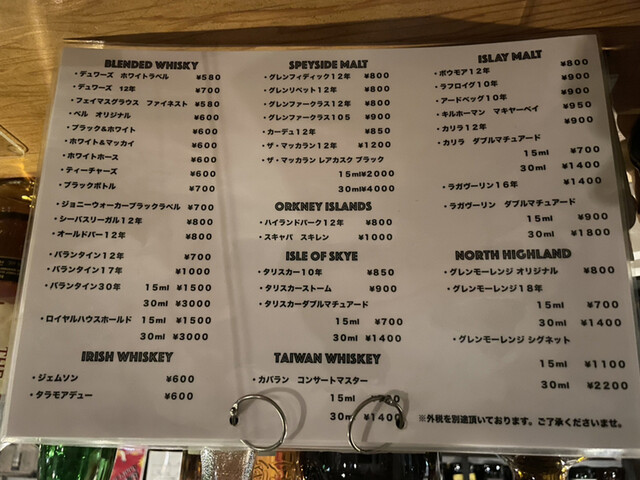 BLENDED WHISKY
・デュワーズ ホワイトラベル ¥580
・デュワーズ 12年 ¥700
・フェイマスグラウス ファイネスト ¥580
・ベル オリジナル ¥600
・ブラック&ホワイト ¥600
・ホワイト&マッカイ ¥600
・ホワイトホース ¥600
・ティーチャーズ ¥600
・ブラックボトル ¥700
・ジョニーウォーカーブラックラベル ¥700
・シーバスリーガル12年 ¥800
・オールドパー12年 ¥800
・バランタイン12年 ¥700
・バランタイン17年 ¥1000
・バランタイン30年 15ml ¥1500
30ml ¥3000
・ロイヤルハウスホールド 15ml ¥1500
30ml ¥3000
IRISH WHISKEY
・ジェムソン ¥600
・タラモアデュー ¥600
SPEYSIDE MALT
・グレンフィディック12年 ¥800
・グレンリベット12年 ¥800
・グレンファークラス12年 ¥800
・グレンファークラス105 ¥900
・カーデュ12年 ¥850
・ザ・マッカラン12年 ¥1200
・ザ・マッカラン レアカスク ブラック
15ml ¥2000
30ml ¥4000
ORKNEY ISLANDS
・ハイランドパーク12年 ¥800
・スキャパ スキレン ¥1000
ISLE OF SKYE
・タリスカー10年 ¥850
・タリスカーストーム ¥900
・タリスカーダブルマチュアード
15ml ¥700
30ml ¥1400
TAIWAN WHISKEY
・カバラン コンサートマスター
15ml
30ml ¥1400
ISLAY MALT
・ボウモア12年 ¥800
・ラフロイグ10年 ¥900
・アードベッグ10年 ¥900
・キルホーマン マキヤーベイ ¥950
・カリラ12年 ¥900
・カリラ ダブルマチュアード
15ml ¥700
30ml ¥1400
・ラガヴーリン16年 ¥1400
・ラガヴーリン ダブルマチュアード
15ml ¥900
30ml ¥1800
NORTH HIGHLAND
・グレンモーレンジ オリジナル ¥800
・グレンモーレンジ18年
15ml ¥700
30ml ¥1400
・グレンモーレンジ シグネット
15ml ¥1100
30ml ¥2200
※外税を別途頂いております。ご了承くださいませ。